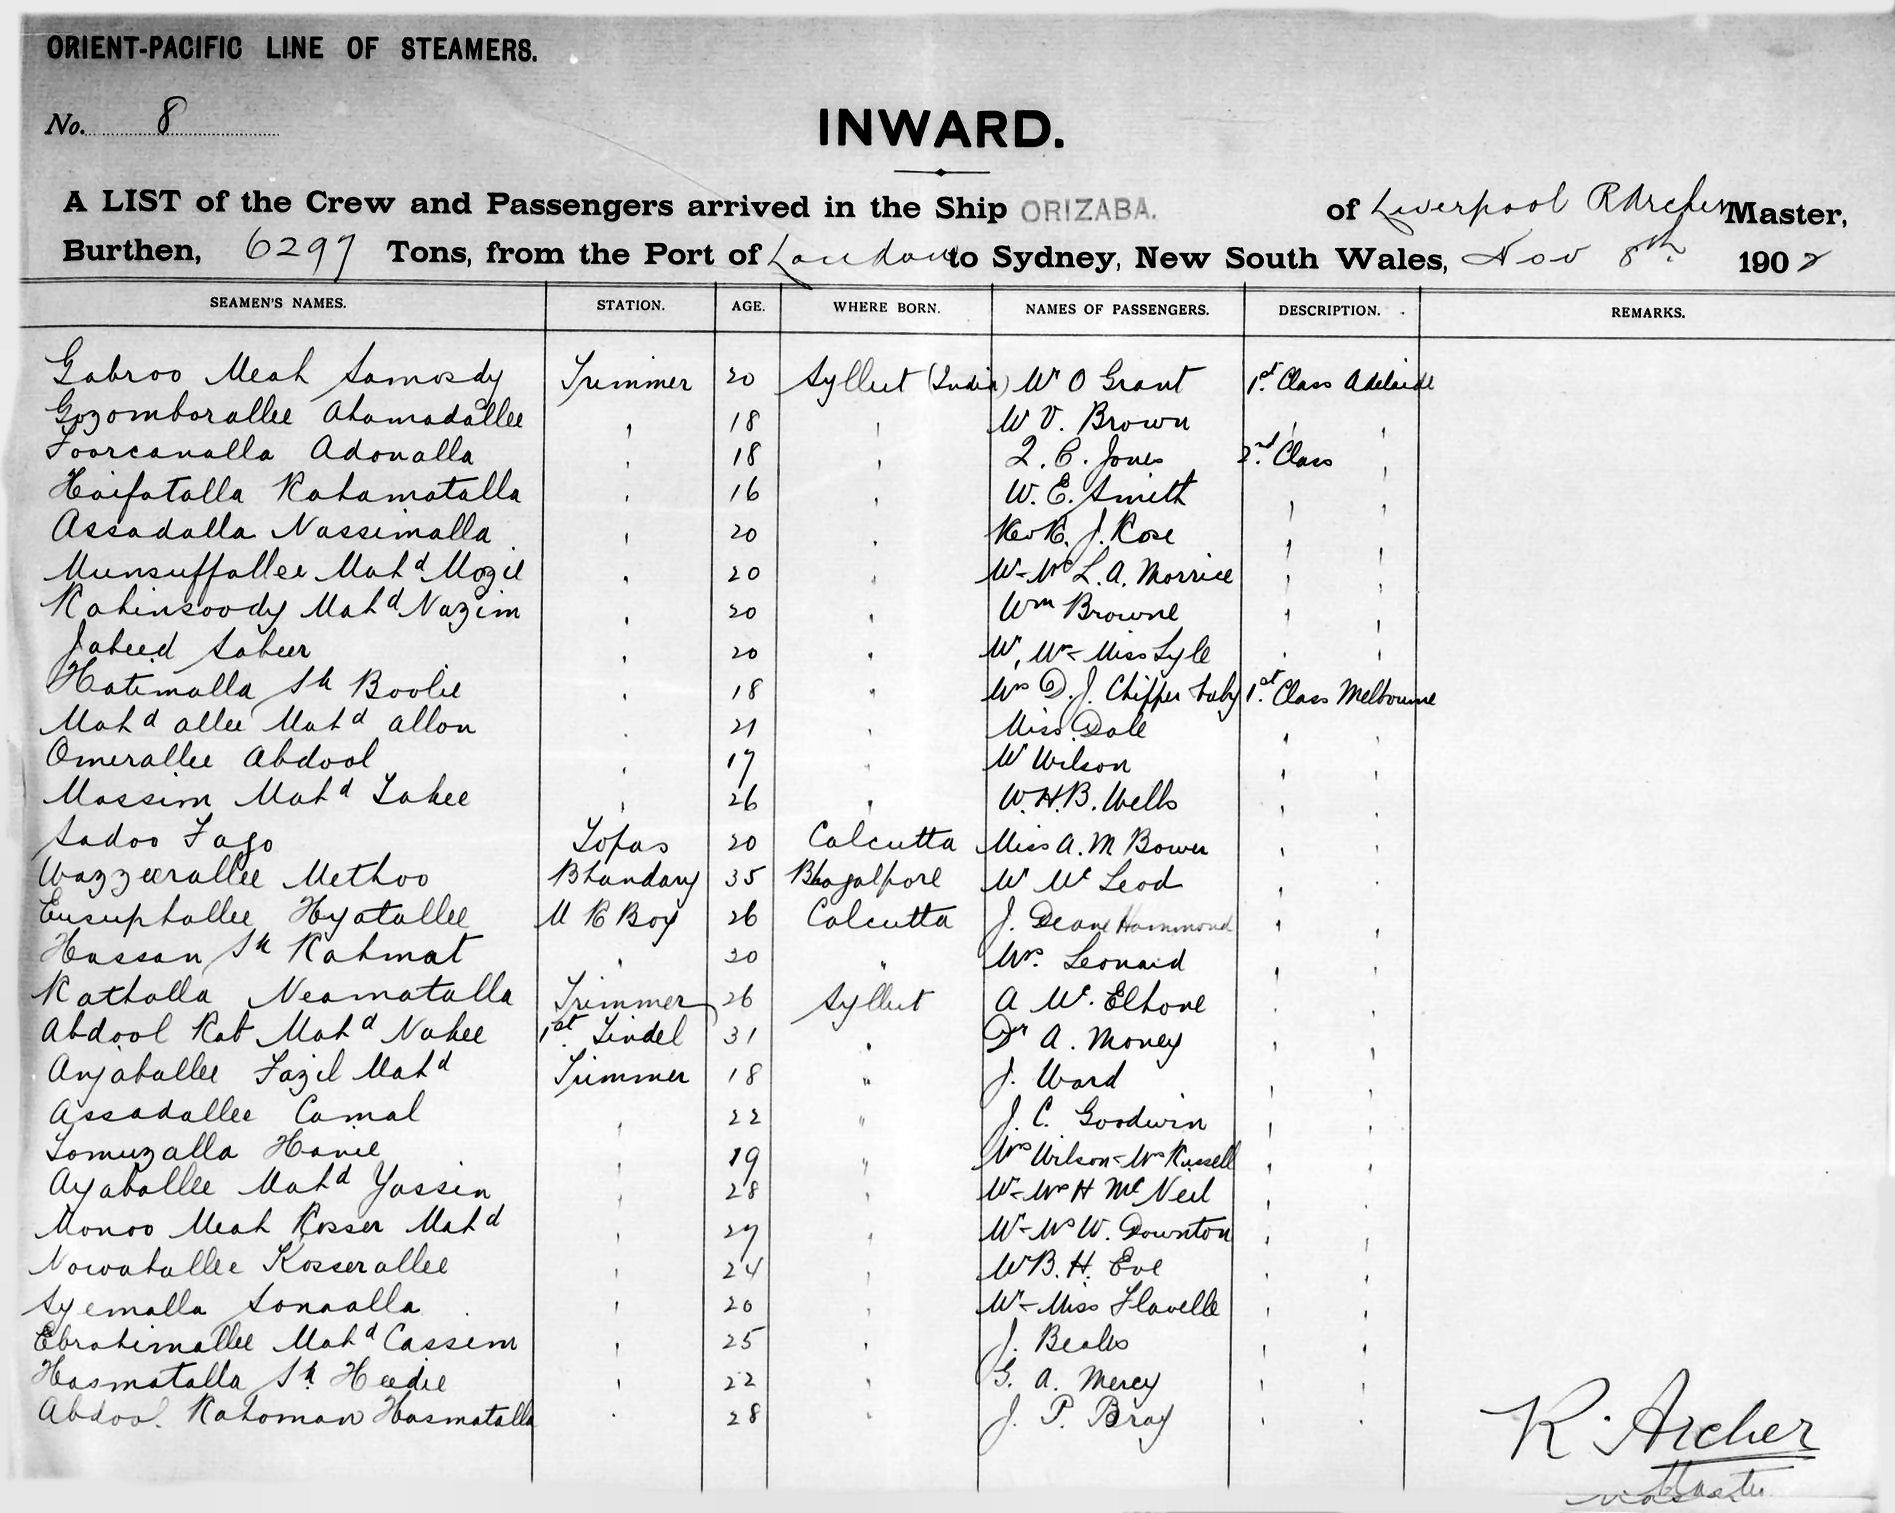 ORIENT-PACIFIC LINE OF STEAMERS.
No. 8
INWARD.
A LIST of the Crew and Passengers arrived in the Ship ORIZABA. of Liverpool R Archer Master,
Burthen, 6297 Tons, from the Port of London to Sydney, New South Wales, Nov 8th 1902
SEAMEN'S NAMES. STATION. AGE. WHERE BORN. NAMES OF PASSENGERS. DESCRIPTION. REMARKS.
Gabroo Meah Samosdy Trimmer 20 Syllut (India) Mr O Grant 1st Class Adelaide
Gozomborallee Ahamadallee " 18 " W V. Brown " "
Toorcanalla Adonalla " 18 " C. Jones 2nd Class "
Haifatalla Rahamatalla " 16 " W. E. Smith " "
Assadalla Nassimalla " 20 " Rev R. J. Rose " "
Munsuffallee Mahd Mozil " 20 " Mr & Mrs L. A. Morrice " "
Rahinsoody Mahd Nazim " 20 " Wm Browne " "
Jaheed Saheer " 20 " Mr, Mrs & Miss Lyle " "
Hatimalla Sk Boolie " 18 " Mrs D. J. Chipper & baby 1st Class Melbourne
Mahd allee Mahd allon " 21 " Miss Dale " "
Omerallee Abdool " 17 " Mr Wilson " "
Massim Mahd Zakee " 26 " W. H. B. Wells " "
Sadoo Fago Topas 20 Calcutta Miss A. M Bower " "
Wazzeerallee Methoo Bhandary 35 Bhagalpore Mr McLeod " "
Eusuphallee Hyatallee M R Boy 26 Calcutta J. Deane Hammond " "
Hassan Sk Rahmat " 20 " Mrs. Leonard " "
Rathalla Neamatalla Trimmer 26 Syllut A Mc Elhone " "
Abdool Rab Mahd Nakee 1st Tindel 31 " Dr A. Money " "
Anjaballee Fazil Mahd Trimmer 18 " J. Ward " "
Assadallee Camal " 22 " J. C. Goodwin " "
Tomuzalla Hanie " 19 " Mrs Wilson & Mrs Russell " "
Ayaballee Mahd Yassin " 28 " Mr & Mrs H McNeil " "
Monoo Meah Kosser Mahd " 27 " Mr & Mrs W. Downton " "
Nowaballee Kosserallee " 24 " Mr B. H. Eve " "
Syemalla Sonaalla " 20 " Mr & Miss Flavelle " "
Ebrahimallee Mahd Cassim " 25 " J. Beales " "
Hasmatalla Sk Heedie " 22 " G. A. Mercy " "
Abdool Rahoman Hasmatalla " 28 " J. P. Bray " "
R. Archer
Master